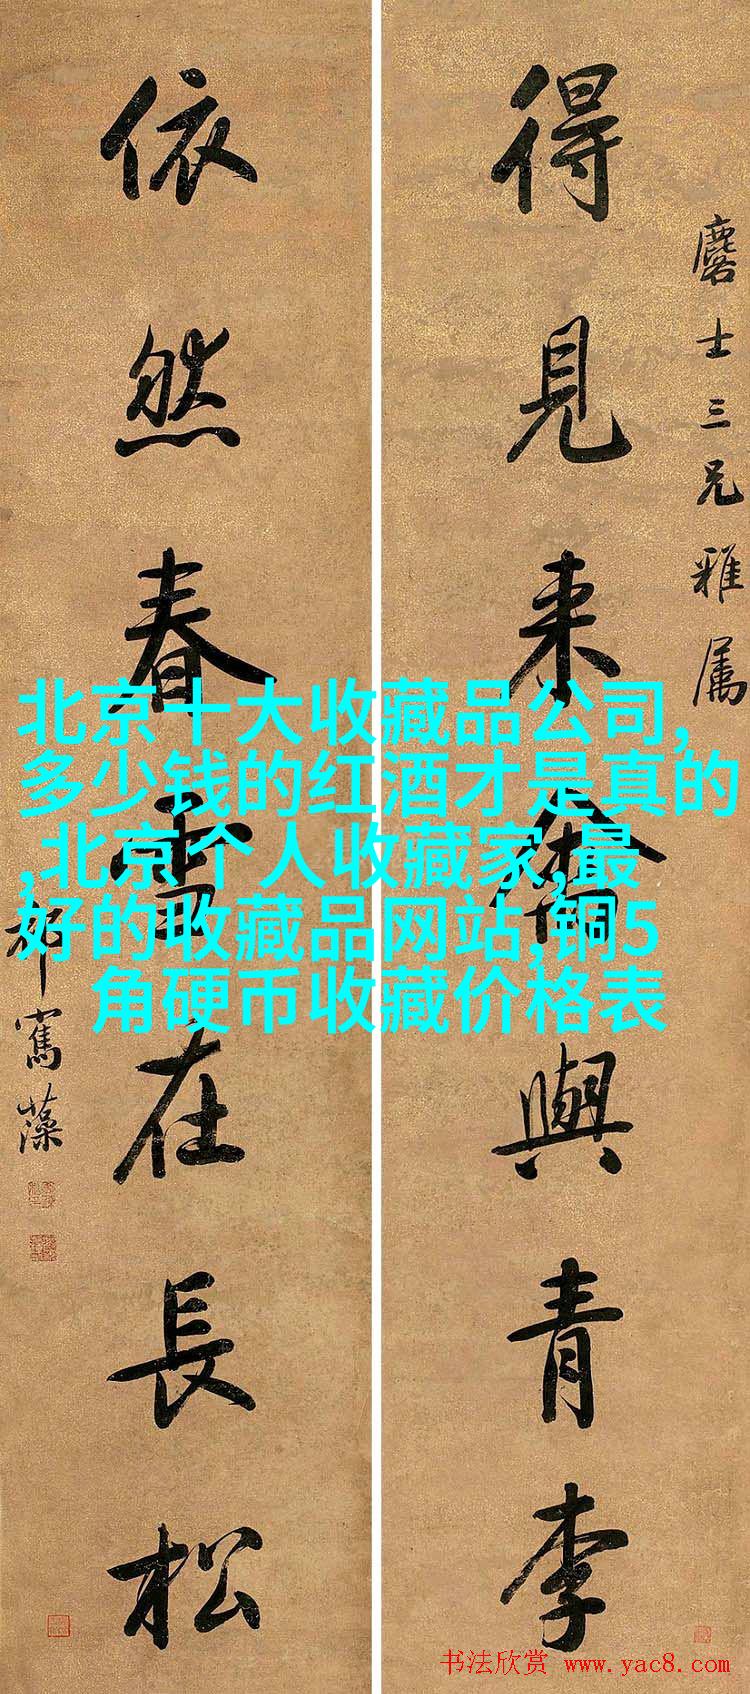 麐士三兄雅属
得見来禽與青李
依然春雪在長松
祁寯藻
北京十大收藏品公司,
多少钱的红酒才是真的
,北京个人收藏家,最
好的收藏品网站,铜5
角硬币收藏价格表
书法欣赏 www.yac8.com